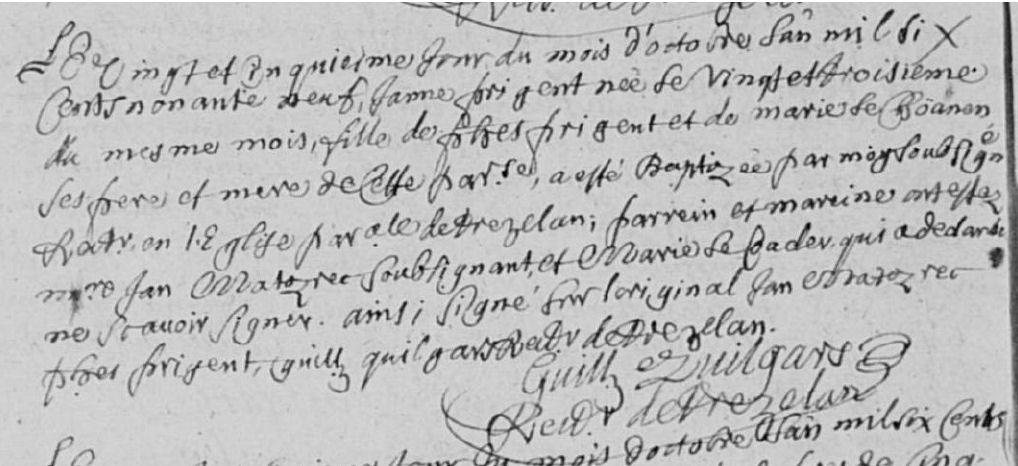 Le Vingt et Cinquieme Jour du mois d'octobre L'an mil six
Cents nonante neuf, Janne prigent née Le Vingt et troisieme
du mesme mois, fille de prigent et de marie Le
ses pere et mere de Cette parsse, a esté Baptizée par moy soubsigné
Ratr. en l'Eglise paralle de trezelan; parrein et mareine ont estez
mre Jan Matozrec soubsignant, et Marie Le Cader qui a declaré
ne scavoir signer. ainsi signé sur l'original Jan Matozrec
prigent, guill quilgars Ratr de trezelan.
Guill Quilgars
Rectr de trezelan
mois d'octobre L'an mil six Cents